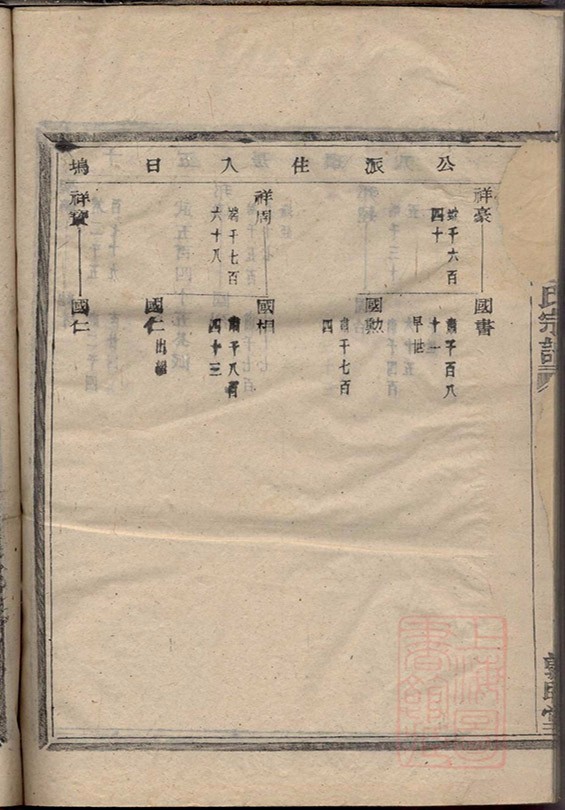 公派住入日塢
祥豪
端千六百
四十
國書
肅千百八
十一
早世
國勲
肅千七百
四
祥周
端千七百
六十八
國相
肅千八百
四十三
國仁
出紹
祥寶
國仁
氏宗譜
上海圖書館藏